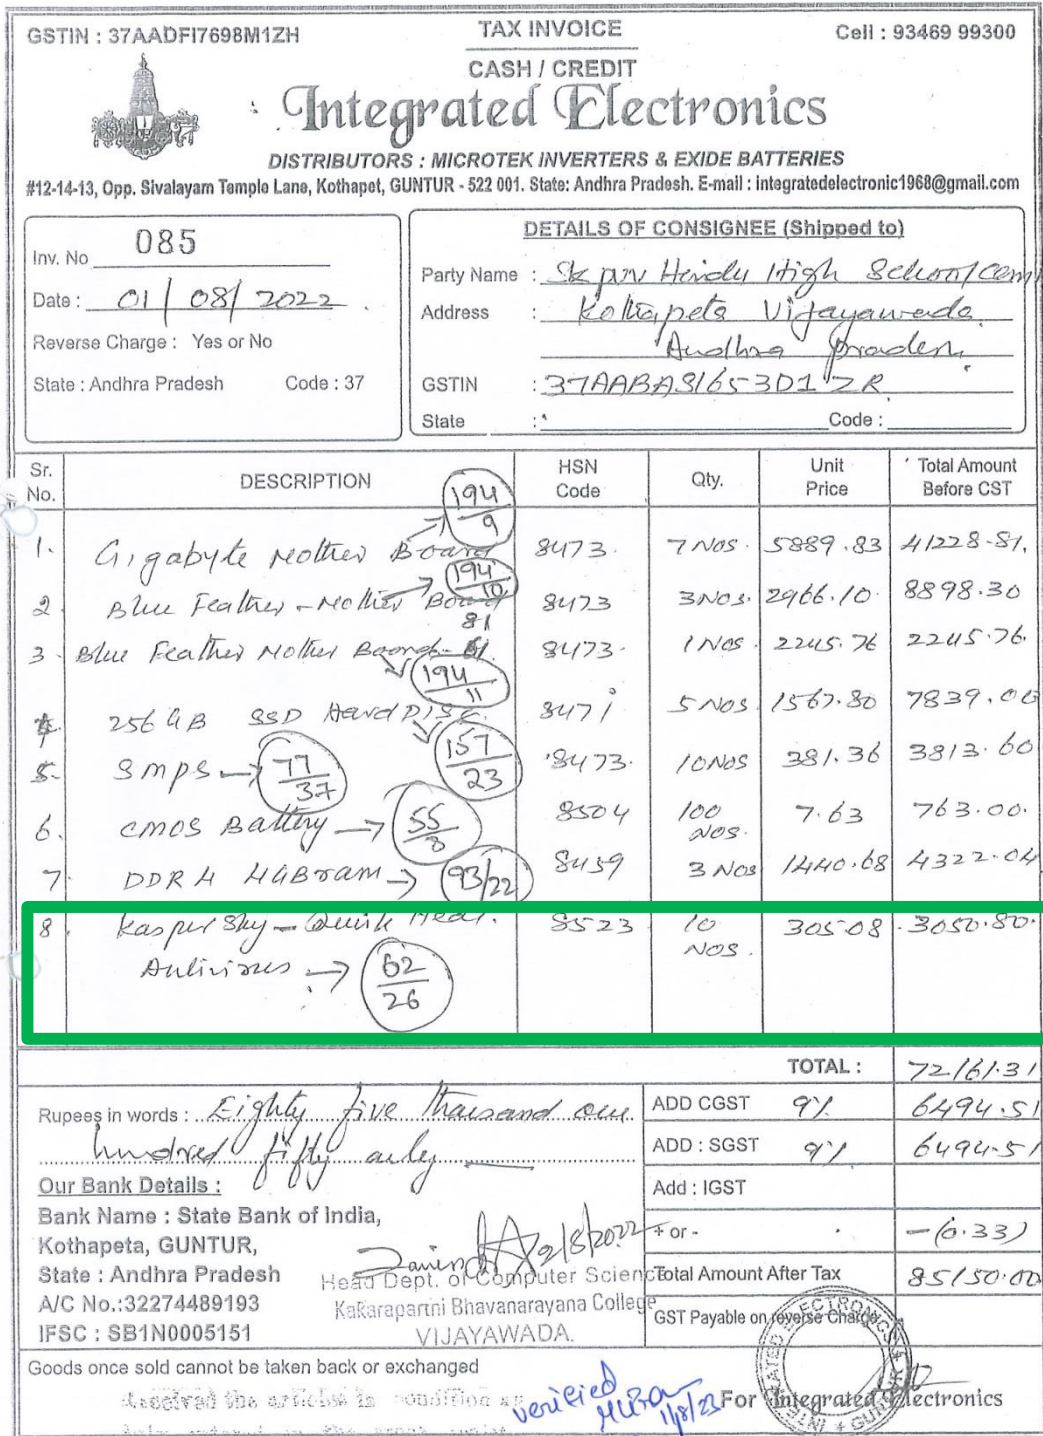 GSTIN : 37AADFI7698M1ZH TAX INVOICE Cell : 93469 99300
CASH / CREDIT
Integrated Electronics
DISTRIBUTORS : MICROTEK INVERTERS & EXIDE BATTERIES
#12-14-13, Opp. Sivalayam Temple Lane, Kothapet, GUNTUR - 522 001. State: Andhra Pradesh. E-mail : integratedelectronic1968@gmail.com
Inv. No 085
Date : 01/08/2022
Reverse Charge : Yes or No
State : Andhra Pradesh Code : 37
DETAILS OF CONSIGNEE (Shipped to)
Party Name : Sk pvv Hindu High School
Address : Kothapeta Vijayawada
Andhra Pradesh
GSTIN : 37AABAS1653D1ZR
State : Code :
Sr. No. DESCRIPTION HSN Code Qty. Unit Price Total Amount Before CST
194/9
1. Gigabyte Mother Board 8473. 7 Nos. 5889.83 41228.81
194/10
2. Blue Feather - Mother Board 8473 3 Nos. 2966.10 8898.30
81
3. Blue Feather Mother Board 8473. 1 Nos. 2245.76 2245.76.
194/11
4. 256 GB SSD Hard Disc. 8471 5 Nos 1567.80 7839.00
157/23
5. SMPS → 77/37 8473. 10 Nos 381.36 3813.60
6. CMOS Battery → 55/8 8504 100 Nos. 7.63 763.00.
7. DDR 4 4GB ram → 93/22 8459 3 Nos 1440.68 4322.04
8. Kasper Sky - Quick Heal. 8523 10 Nos. 305.08 3050.80.
Antivirus → 62/26
TOTAL : 72161.31
Rupees in words : Eighty five thousand one
hundred fifty only
ADD CGST 9% 6494.51
ADD : SGST 9% 6494.51
Add : IGST
+ or - -(0.33)
Total Amount After Tax 85150.00
GST Payable on reverse Charge
Our Bank Details :
Bank Name : State Bank of India,
Kothapeta, GUNTUR,
State : Andhra Pradesh
A/C No.:32274489193
IFSC : SB1N0005151
2/8/2022
Head Dept. of Computer Scienc
Kakaraparni Bhavanarayana College
VIJAYAWADA.
Goods once sold cannot be taken back or exchanged
Received the articles in condition as
verified
11/8/23
For Integrated Electronics
INTEGRATED ELECTRONICS